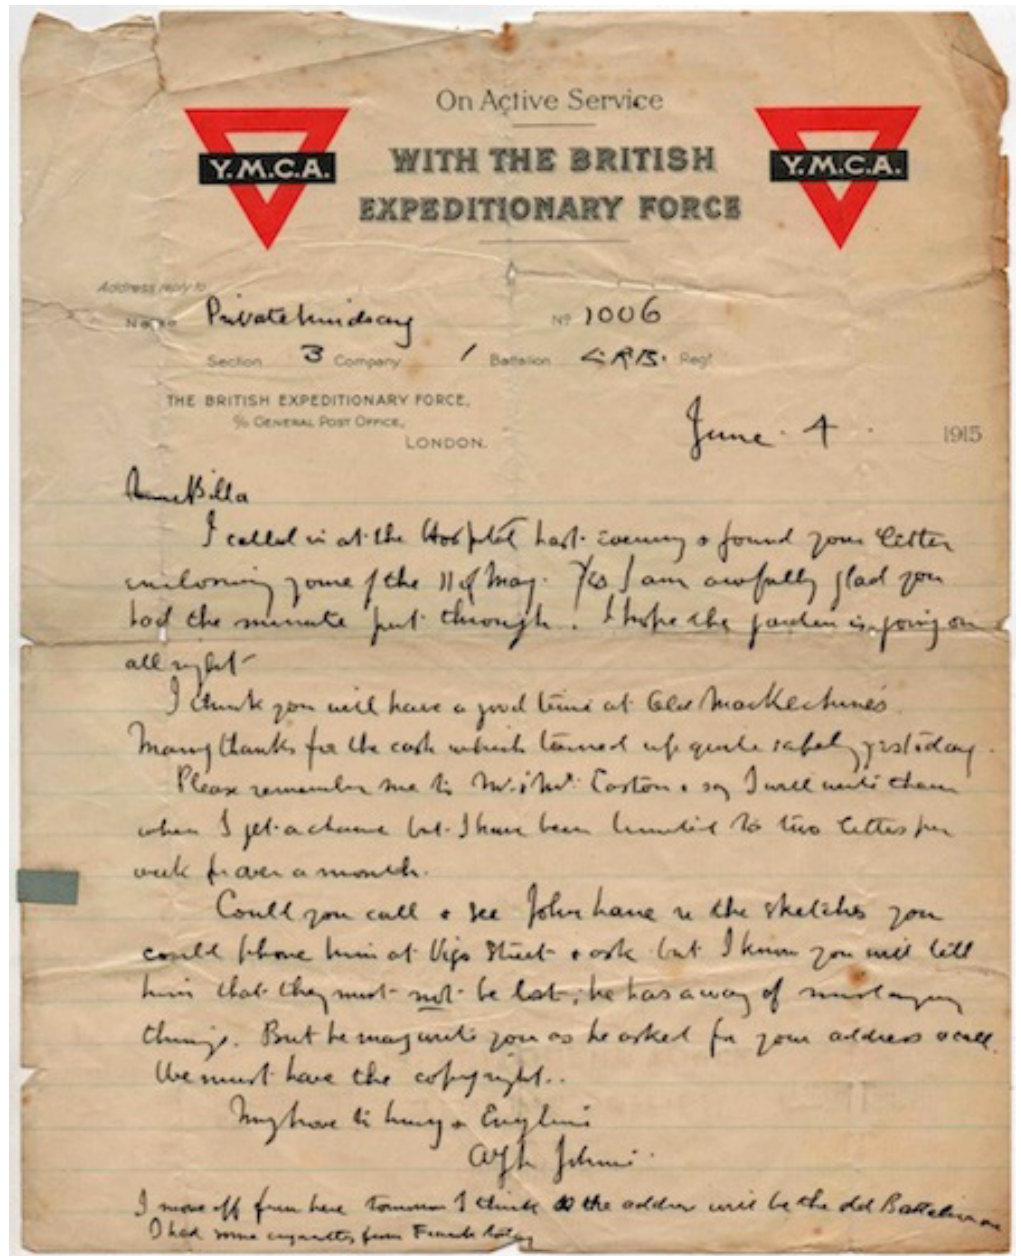 On Active Service
Y.M.C.A.
WITH THE BRITISH
EXPEDITIONARY FORCE
Y.M.C.A.
Address reply to
Name Private Lindsay Nº 1006
Section 3 Company 1 Battalion Regt
THE BRITISH EXPEDITIONARY FORCE,
c/o GENERAL POST OFFICE,
LONDON.
June 4 1915
Billa
I called in at the Hospital last evening & found your letter
enclosing yours of the 11 of May. Yes I am awfully glad you
had the minute put through. I hope the garden is going on
all right
I think you will have a good time at
Many thanks for the cash which turned up quite safely yesterday.
Please remember me to Mr. & Mrs. Caston & say I will write them
when I get a chance but I have been limited to two letters per
week for over a month.
Could you call & see John Lane re the sketches you
could phone him at Vigo Street & ask but I know you will tell
him that they must not be lost, he has a way of mislaying
things. But he may write you as he asked for your address & call.
We must have the copyright..
My love to &

I move off from here tomorrow I think the address will be the old Battalion one
I had some cigarettes from Frank today